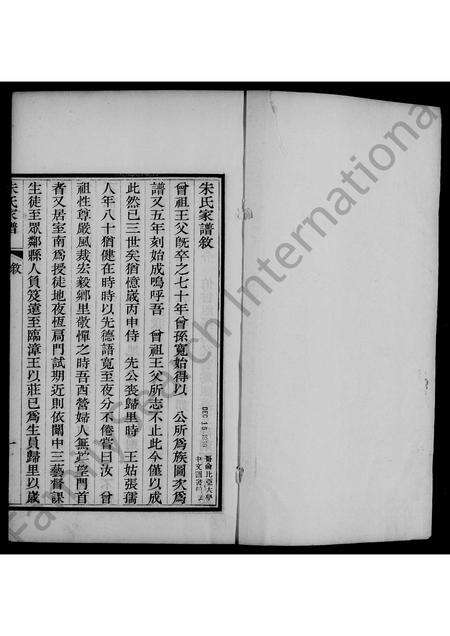 朱氏家譜敘
曾祖王父既卒之七十年曾孫寬始得以　公所爲族圖次爲
譜又五年刻始成嗚呼吾　曾祖王父所志不止此今僅以成
此然已三世矣猶憶歲丙申侍　先公喪歸里時　王姑張孺
人年八十猶健在時時以先德語寬至夜分不倦嘗曰汝　曾
祖性尊嚴風裁宏毅鄉里敬憚之時吾西營婦人無趂望門首
者又居室南爲授徒地夜恆扃門試期近則依闈中三藝督課
生徒至眾鄰縣人負笈遠至臨漳王以莊已爲生員歸里以歲
朱氏家譜
敘
一
DEC 15
哥倫比亞大學
中文圖書
FamilySearch International